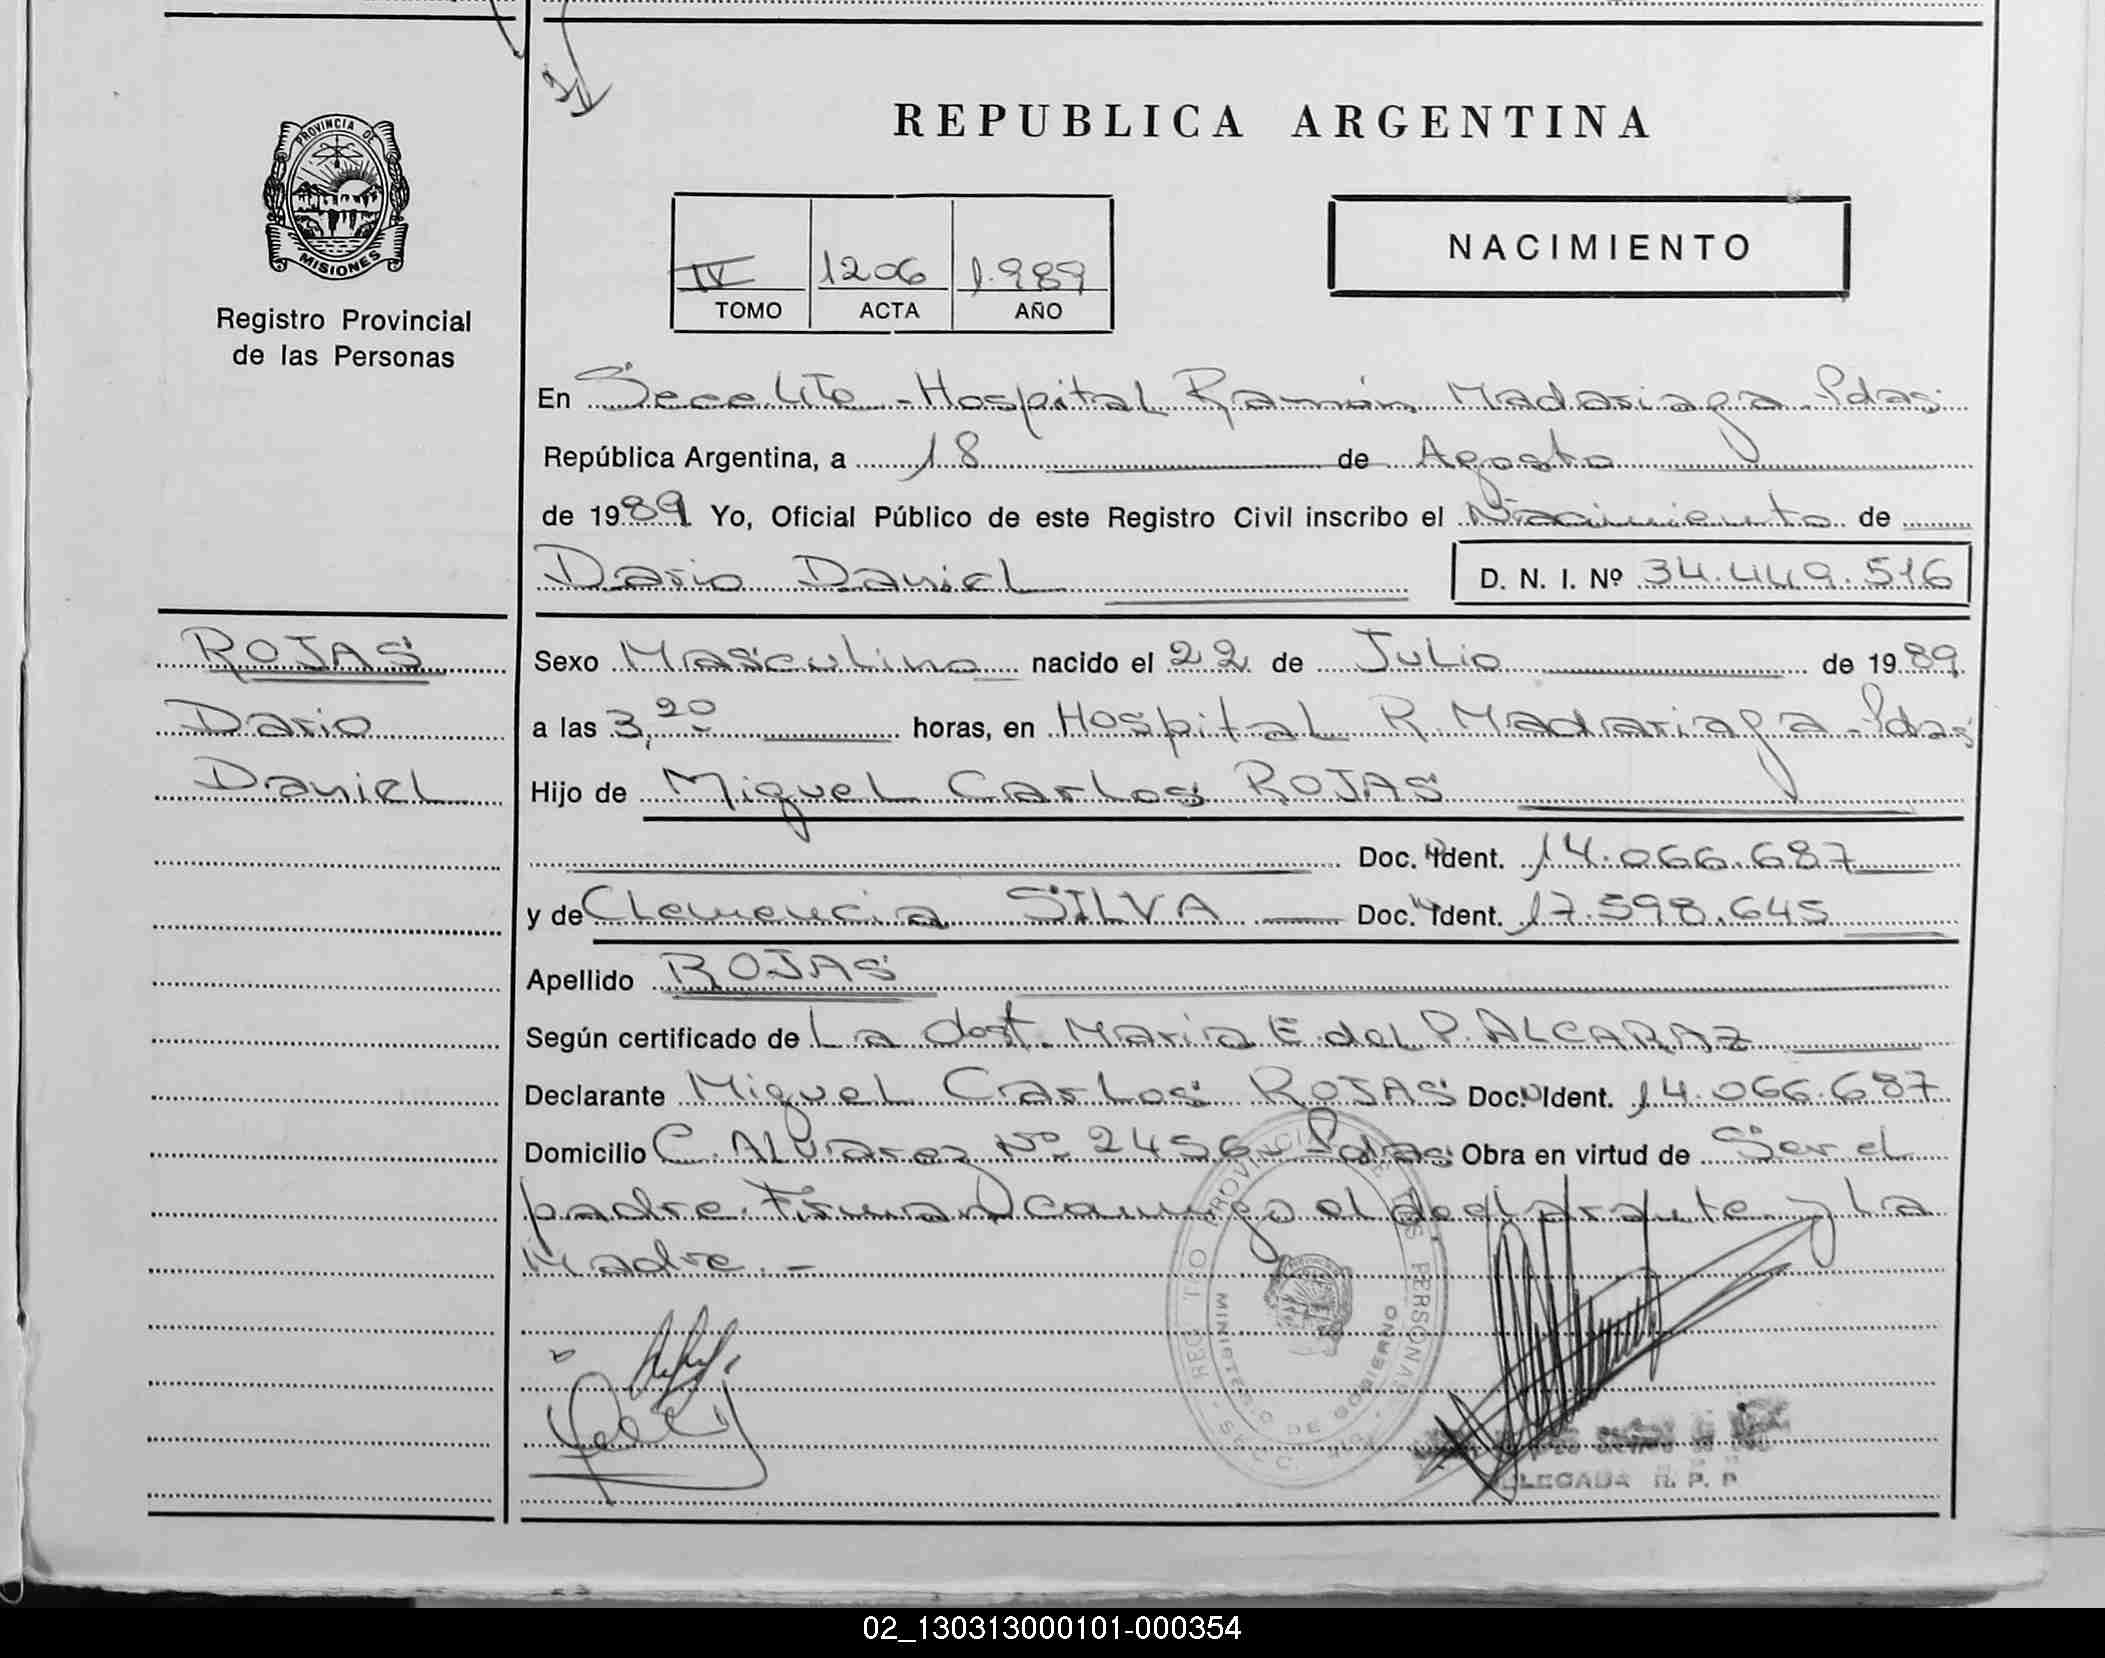 REPUBLICA ARGENTINA
PROVINCIA DE
MISIONES
Registro Provincial
de las Personas
IV 1206 1.989
TOMO ACTA AÑO
NACIMIENTO
En Secc. - Hospital Ramón Madariaga - Pdas
República Argentina, a 18 de Agosto
de 1989 Yo, Oficial Público de este Registro Civil inscribo el Nacimiento de
Dario Daniel D. N. I. Nº 34.449.516
ROJAS
Dario
Daniel
Sexo Masculino nacido el 22 de Julio de 1989
a las 3,20 horas, en Hospital R. Madariaga - Pdas
Hijo de Miguel Carlos ROJAS
Doc. Ident. 14.066.687
y de Clemencia SILVA Doc. Ident. 17.598.645
Apellido ROJAS
Según certificado de La dost. Maria E. del P. ALCARAZ
Declarante Miguel Carlos ROJAS Doc. Ident. 14.066.687
Domicilio C. ALvarez Nº 2456 Pdas Obra en virtud de Ser el
padre. Firman conmigo el declarante y La
Madre. -
REGISTRO PROVINCIAL DE LAS PERSONAS
MINISTERIO DE GOBIERNO
DELEGADA R. P. P.
02_130313000101-000354